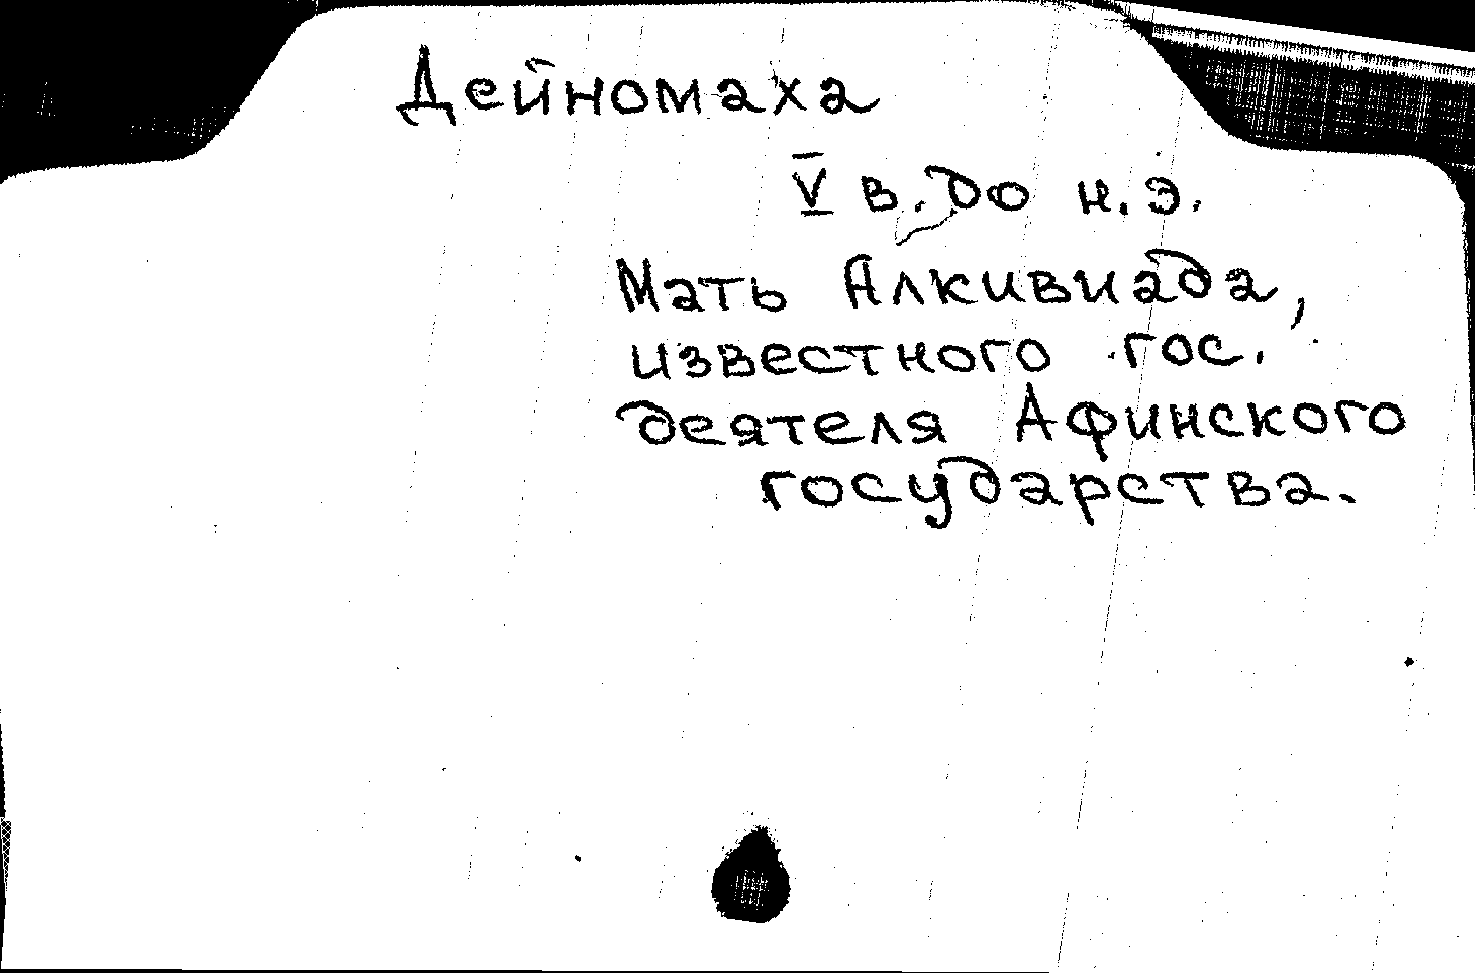 Дейномаха
V в. до н.э.
Мать Алкивиада,
известного гос.
деятеля Афинского
государства.